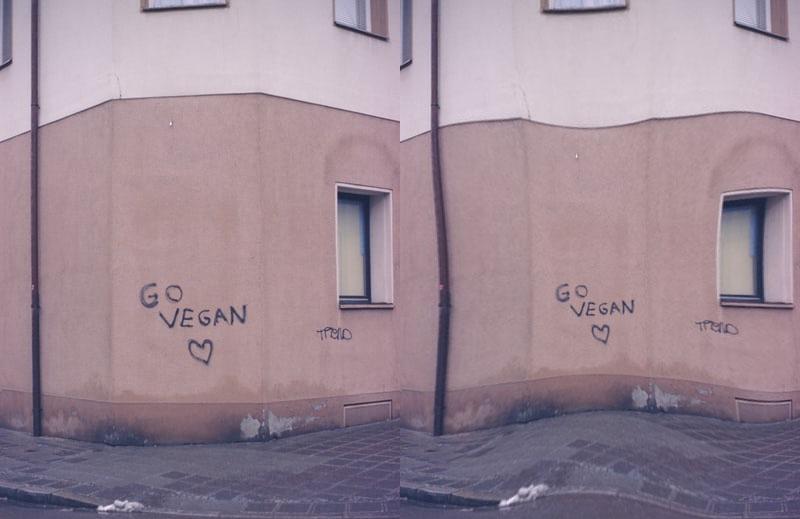 GO
VEGAN
TREND
GO
VEGAN
TREND